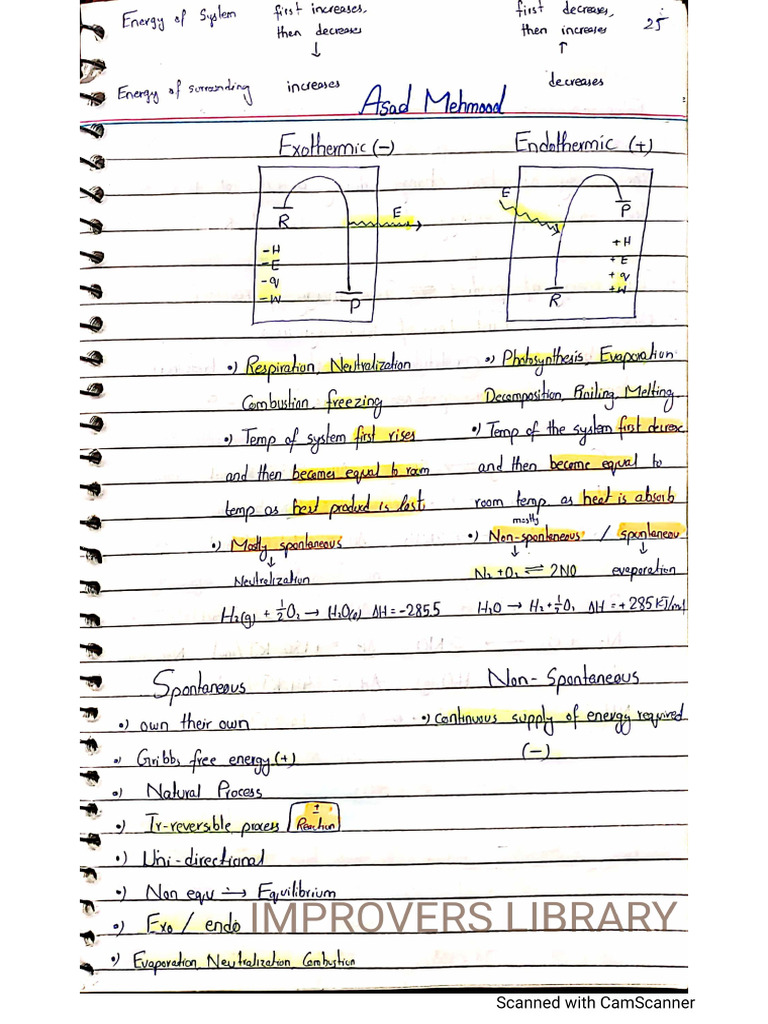 Energy of System first increases, first decreases, 25
then decreases then increases
↓ ↑
Energy of surrounding increases decreases
Asad Mehmood
Exothermic (-) Endothermic (+)
R E P
-H
-E
-q
-W
E P R
+H
+E
+q
+W
•) Respiration, Neutralization •) Photosynthesis, Evaporation
Combustion, freezing Decomposition, Melting
•) Temp of system first rises •) Temp of the system first decrex
and then becomes equal to room and then become equal to
temp as heat product is lost. room temp. as heat is absorb
•) Mostly spontaneous •) mostly Non-spontaneous / spontaneou
↓ ↓ ↓
Neutralization N₂ + O₂ ⇌ 2NO evaporation
H₂(g) + ½O₂ → H₂O(l) ΔH = -285.5 H₂O → H₂ + ½O₂ ΔH = +285 KJ/mol
Spontaneous Non-Spontaneous
•) own their own •) continuous supply of energy required
•) Gribbs free energy (+) (-)
•) Natural Process
•) Ir-reversible process ± Reaction
•) Uni-directional
•) Non equ → Equilibrium
•) Exo / endo
IMPROVERS LIBRARY
•) Evaporation, Neutralization, Combustion
Scanned with CamScanner